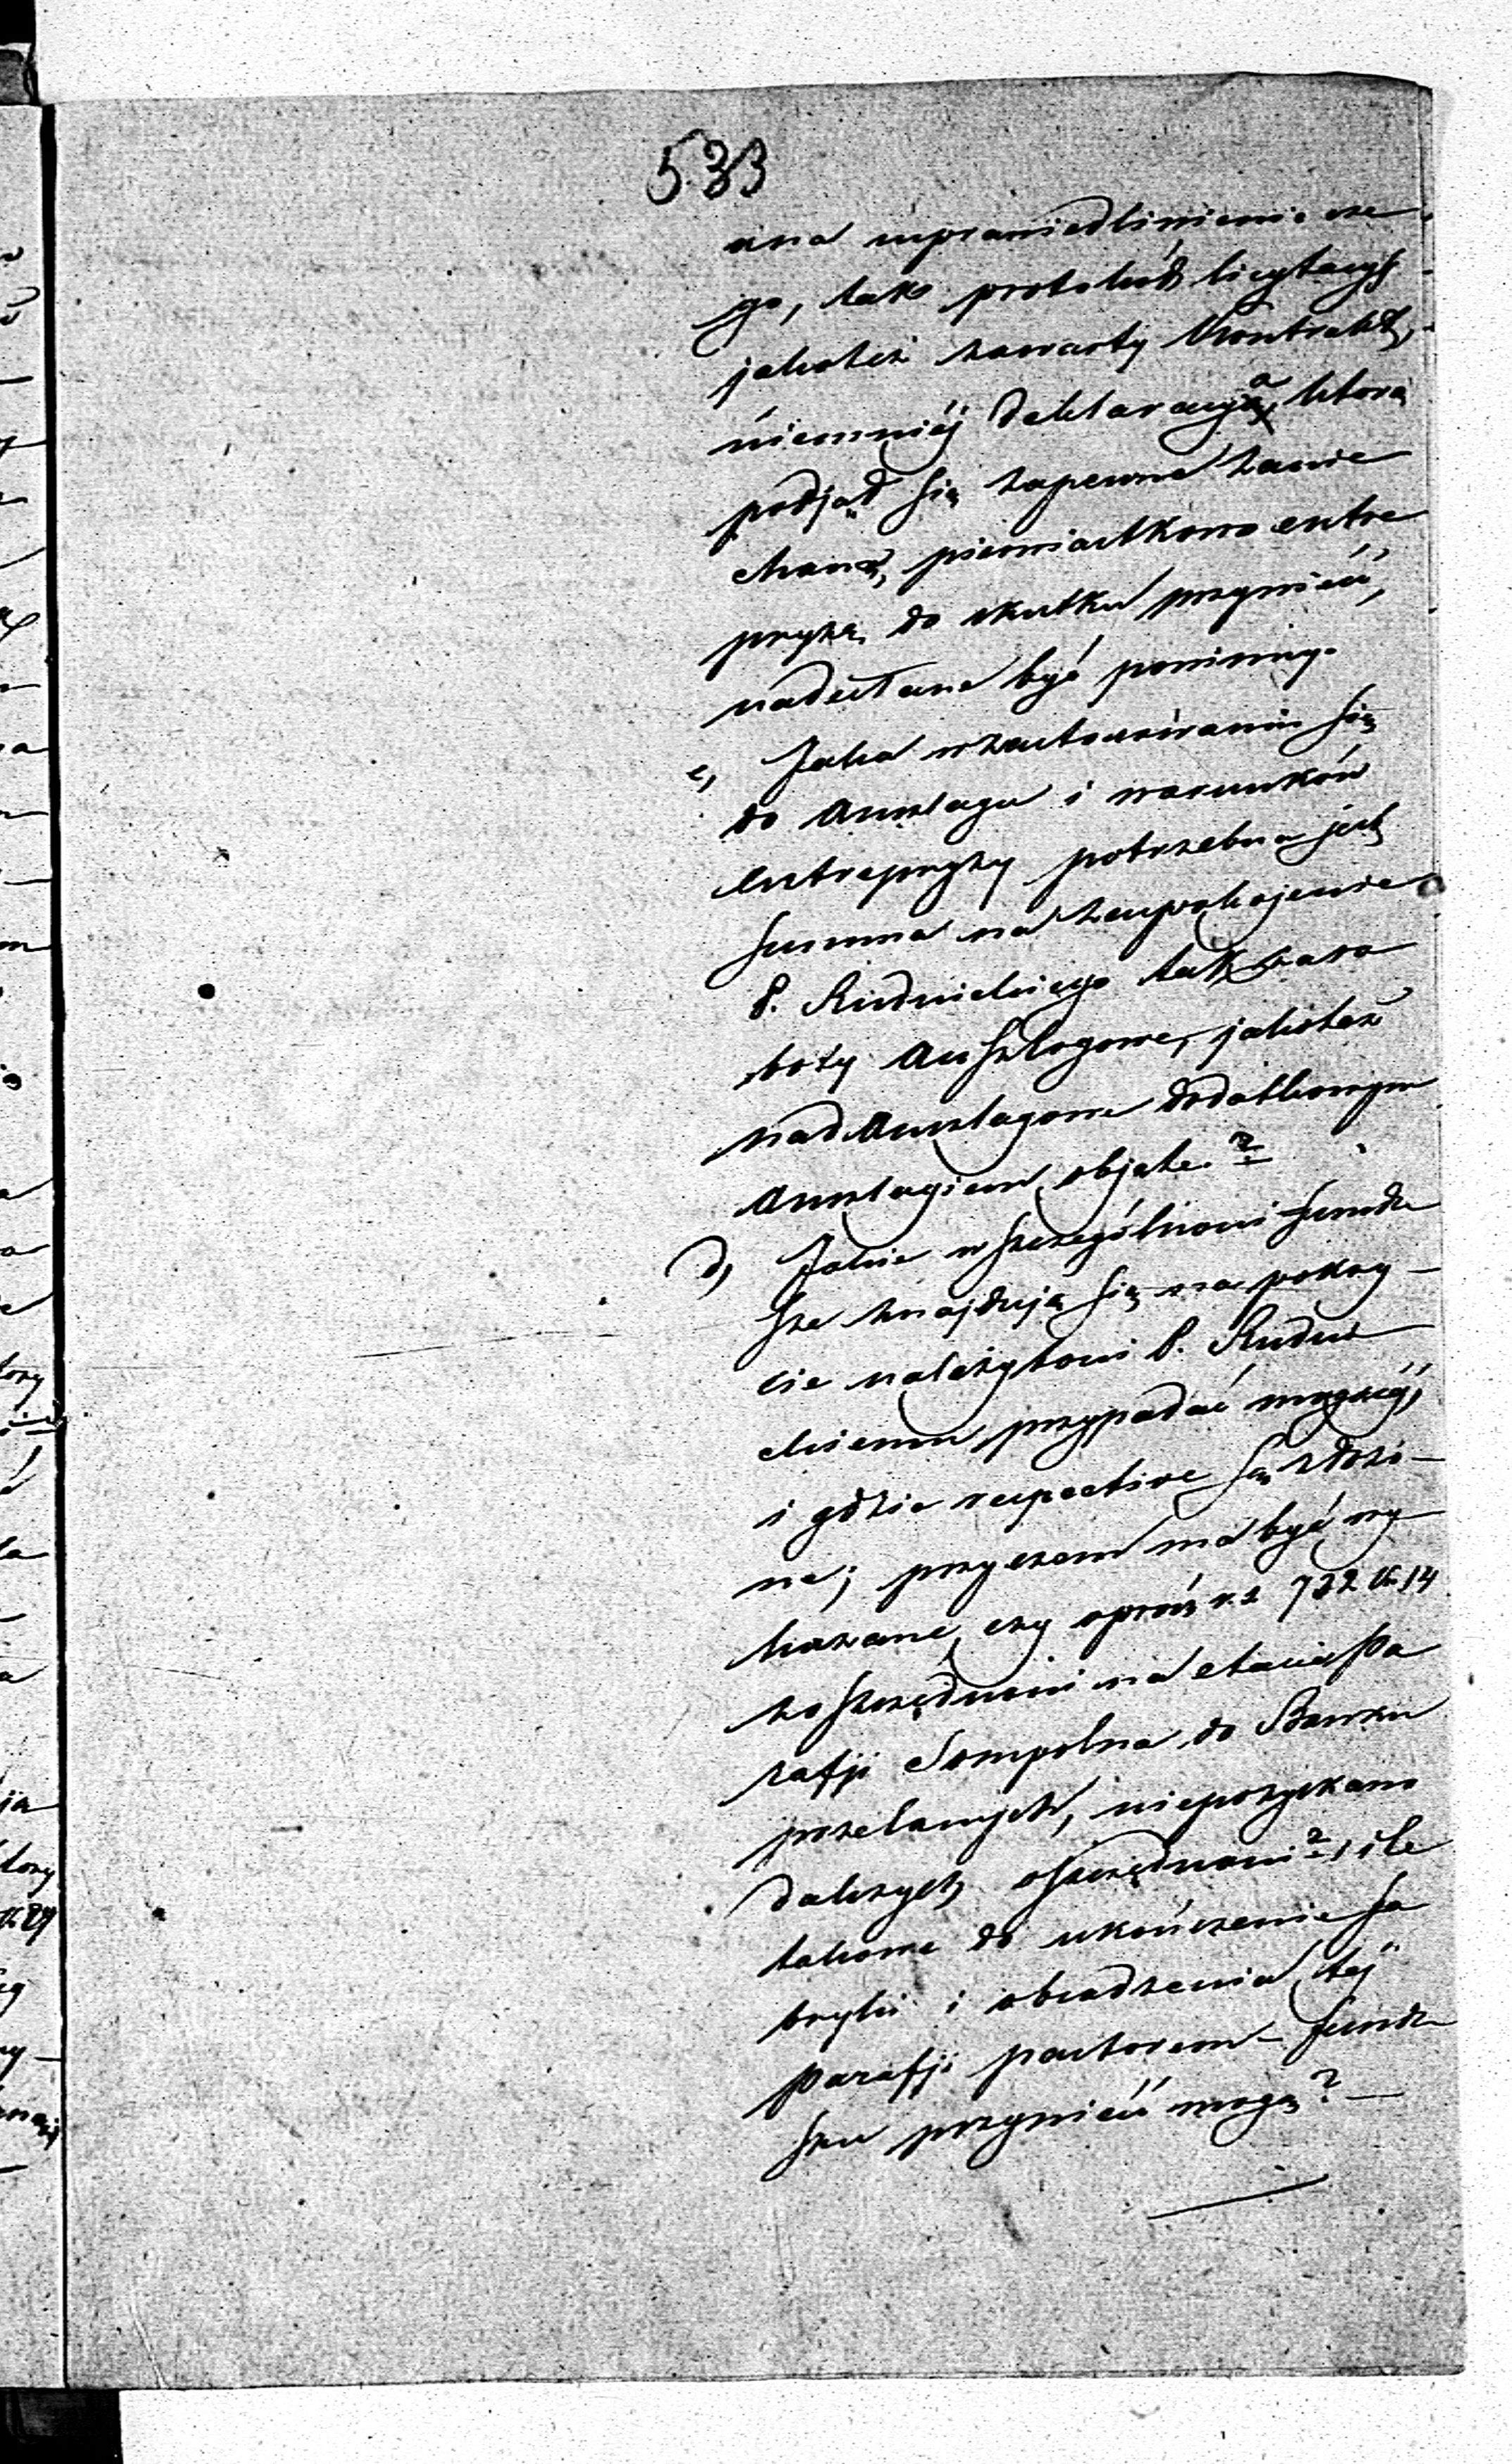 533
ana usprawiedliwienie cze
go, tak protokół licytacyi
jakoteż zawarty Kontrakt,
niemniéj deklaracya, którą
podjął się zapewne zanie
chaną, pierwiastkowo entre
pryzę do skutku przywieść,
nadesłane być powinny.
c, Jaka w zastosowaniu się
do Anszlagu i warunków
Entrepryzy potrzebna jest
summa na zaspokojenie
P. Rudnickiego tak za ro
boty Anszlagowe, jakoteż
nadanszlagowe dodatkowym
Anszlagiem objęte?
d, Jakie w szczególności fundu
sze znajdują się na pokry-
cie należytości P. Rudni
ckiemu przypadać mogącéj,
i gdzie respective są złożo-
ne; przyczem ma być wy
kazane, czy oprócz r.s. 722 k. 14
z oszczędności na etacie Pa
rafji Sompolna do Banku
przelanych, niepozyskano
dalszych oszczędności?, i le
takowe do ukończenia fa
bryki i obsadzenia téj
parafji pastorem - fundu
szu przynieść mogą? —